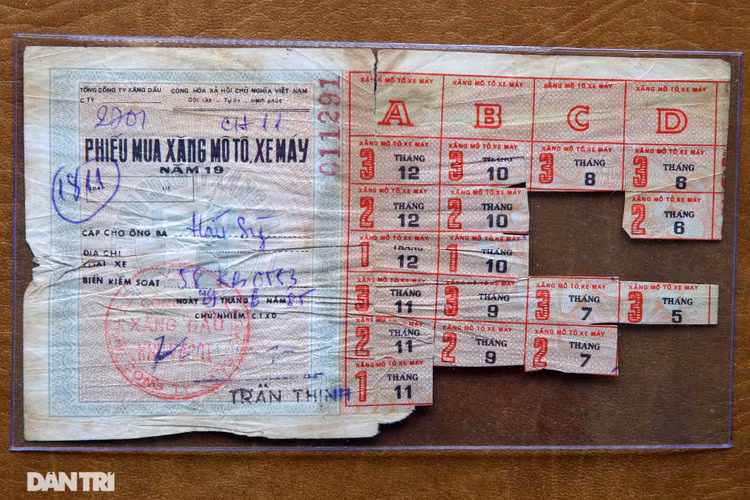 TỔNG CÔNG TY XĂNG DẦU
CỘNG HÒA XÃ HỘI CHỦ NGHĨA VIỆT NAM
C.TY
Độc lập - Tự do - Hạnh phúc
2701
CH 11
PHIẾU MUA XĂNG MÔ TÔ, XE MÁY
NĂM 19
1811
011291
CẤP CHO ÔNG BÀ
ĐỊA CHỈ
LOẠI XE
BIỂN KIỂM SOÁT
NGÀY THÁNG NĂM 85
CHỦ NHIỆM C.T.X.D
XĂNG DẦU
TRẦN THỊNH
XĂNG MÔ TÔ, XE MÁY XĂNG MÔ TÔ, XE MÁY XĂNG MÔ TÔ, XE MÁY XĂNG MÔ TÔ, XE MÁY
A B C D
XĂNG MÔ TÔ, XE MÁY XĂNG MÔ TÔ, XE MÁY XĂNG MÔ TÔ, XE MÁY XĂNG MÔ TÔ, XE MÁY
3 THÁNG 12 3 THÁNG 10 3 THÁNG 8 3 THÁNG 6
XĂNG MÔ TÔ, XE MÁY XĂNG MÔ TÔ, XE MÁY XĂNG MÔ TÔ, XE MÁY
2 THÁNG 12 2 THÁNG 10 2 THÁNG 6
XĂNG MÔ TÔ, XE MÁY XĂNG MÔ TÔ, XE MÁY
1 THÁNG 12 1 THÁNG 10
XĂNG MÔ TÔ, XE MÁY XĂNG MÔ TÔ, XE MÁY XĂNG MÔ TÔ, XE MÁY XĂNG MÔ TÔ, XE MÁY
3 THÁNG 11 3 THÁNG 9 3 THÁNG 7 3 THÁNG 5
XĂNG MÔ TÔ, XE MÁY XĂNG MÔ TÔ, XE MÁY XĂNG MÔ TÔ, XE MÁY
2 THÁNG 11 2 THÁNG 9 2 THÁNG 7
XĂNG MÔ TÔ, XE MÁY
1 THÁNG 11
DÂN TRÍ